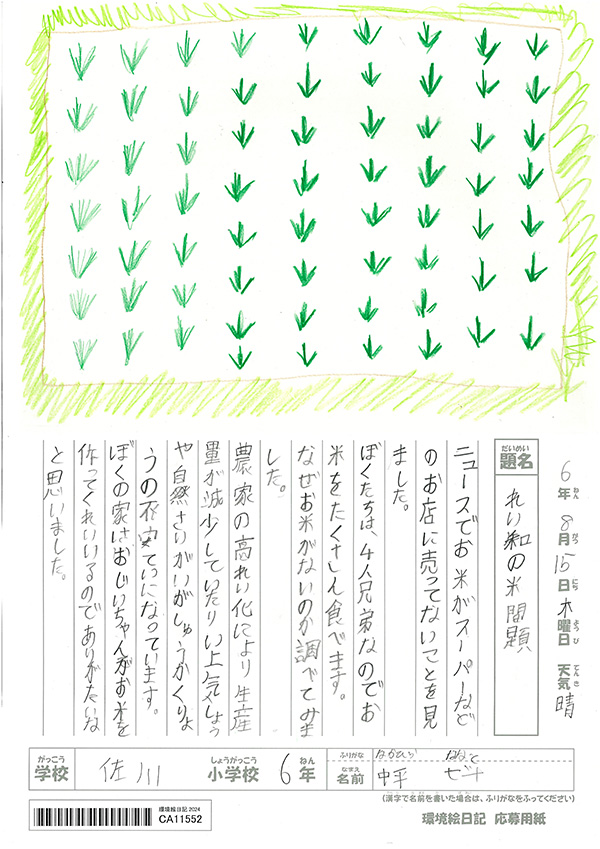 6年 8月 15日 木曜日 天気 晴
題名 れい和の米問題
ニュースでお米がスーパーなど
のお店に売ってないことを見
ました。
ぼくたちは、4人兄弟なのでお
米をたくさん食べます。
なぜお米がないのか調べてみま
した。
農家の高れい化により生産
量が減少していたりい上気しょう
や自然さいがいがしゅうかくりょ
うの不安ていになっています。
ぼくの家はおじいちゃんがお米を
作ってくれいいるのでありがたいな
と思いました。
学校 佐川 小学校 6年
ふりがな なかひら
名前 中平
(漢字で名前を書いた場合は、ふりがなをふってください)
環境絵日記 2024
CA11552
環境絵日記 応募用紙